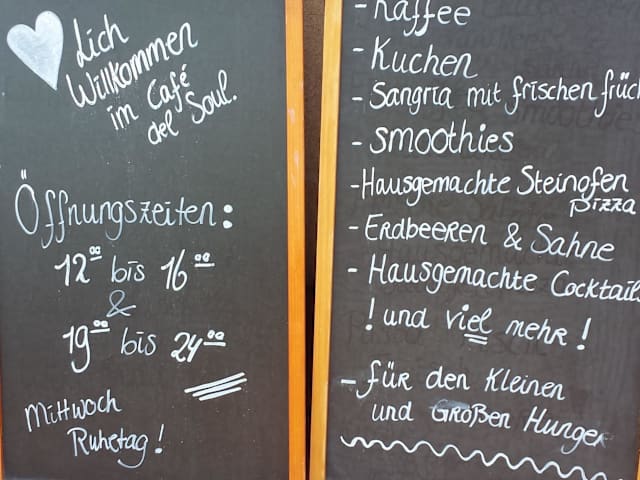 lich
Willkommen
im Café
del Soul.
Öffnungszeiten:
12⁰⁰ bis 16⁰⁰
&
19⁰⁰ bis 24⁰⁰
Mittwoch
Ruhetag!
- Kaffee
- Kuchen
- Sangria mit frischen früch
- smoothies
- Hausgemachte Steinofen
pizza
- Erdbeeren & Sahne
- Hausgemachte Cocktails
! und viel mehr!
- für den Kleinen
und Großen Hunger